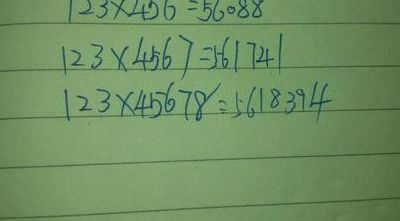 123×456=56088
123×4567=561741
123×45678=5618394